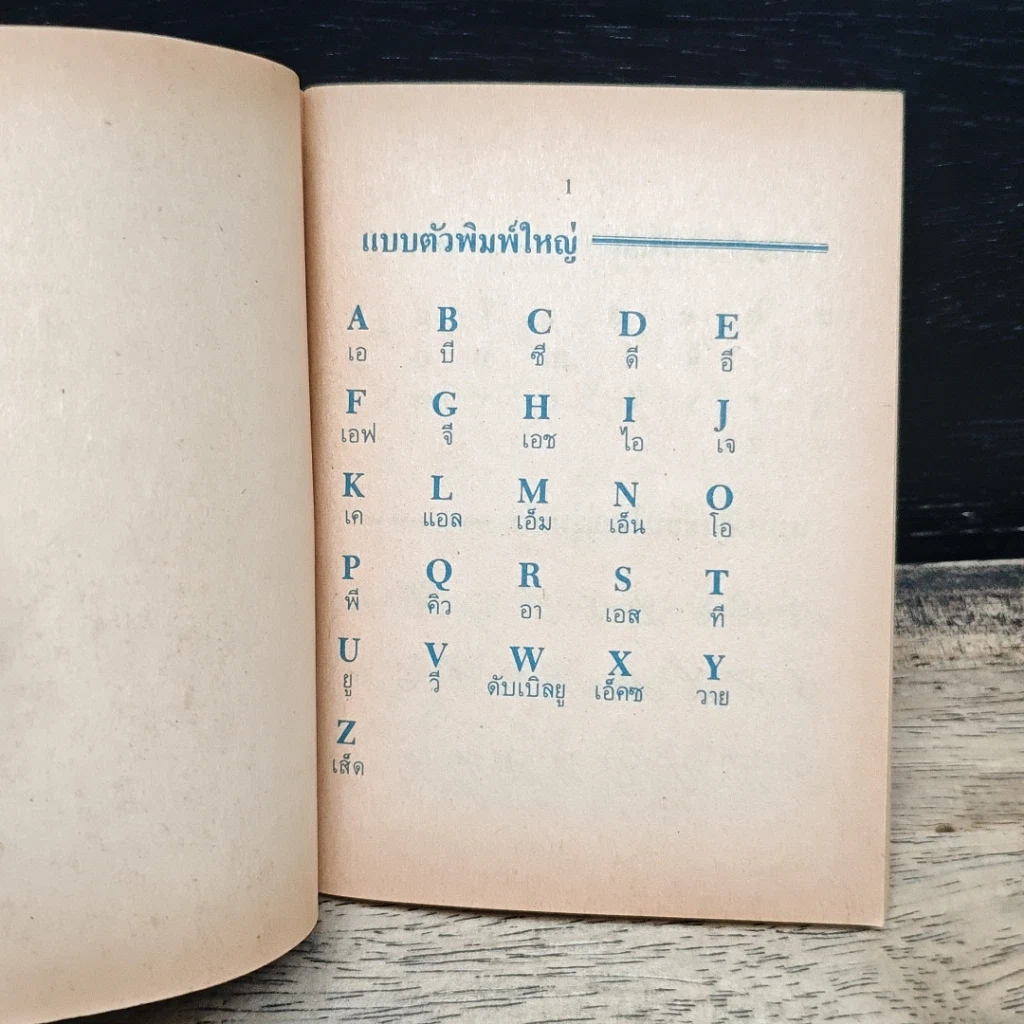 1
แบบตัวพิมพ์ใหญ่
A B C D E
เอ บี ซี ดี อี
F G H I J
เอฟ จี เอช ไอ เจ
K L M N O
เค แอล เอ็ม เอ็น โอ
P Q R S T
พี คิว อา เอส ที
U V W X Y
ยู วี ดับเบิลยู เอ็คซ วาย
Z
เส็ด